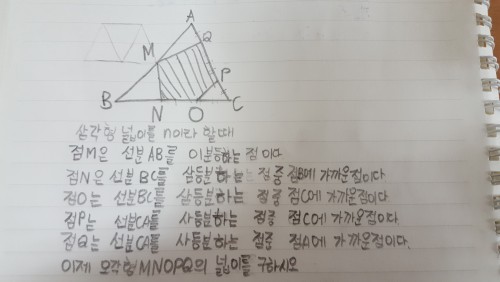 A
Q
M
P
B
N
O
C
삼각형 넓이를 n이라 할때
점M은 선분AB를 이분등하는 점 이다
점N은 선분BC를 삼등분하는 점중 점B에 가까운점이다
점O는 선분BC를 삼등분하는 점중 점C에 가까운점이다
점P는 선분CA를 사등분하는 점중 점C에 가까운점이다
점Q는 선분CA를 사등분하는 점중 점A에 가까운점이다.
이제 오각형MNOPQ의 넓이를 구하시오